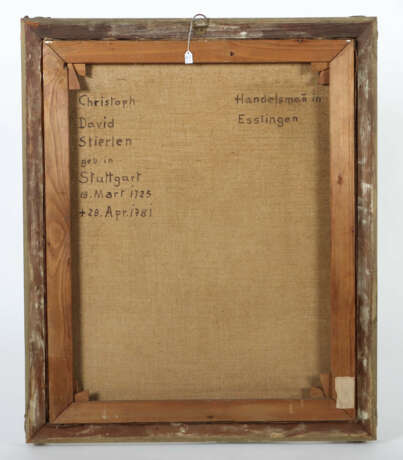 Christoph
David
Stierlen
geb. in
Stuttgart
18. Mart 1725
+28. Apr. 1781
Handelsmañ in
Esslingen